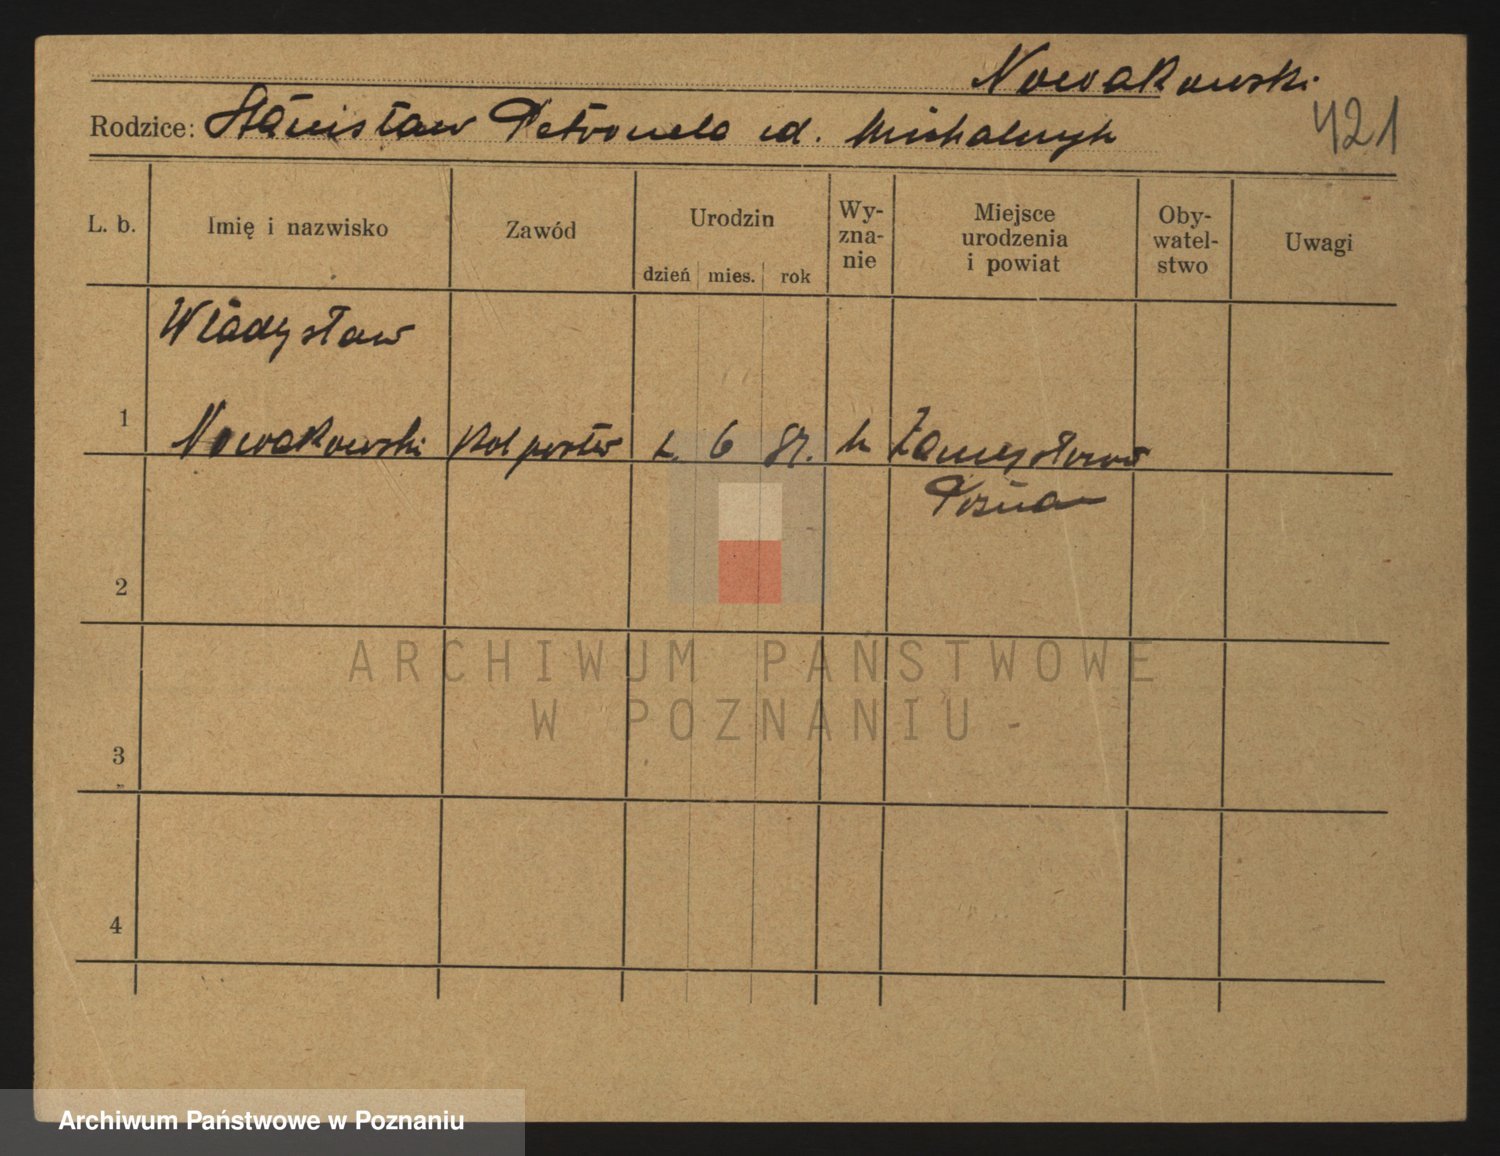 Nowakowski
Rodzice: Stanisław Petronela ud. Michalczyk
421
L. b.
Imię i nazwisko
Zawód
Urodzin
dzień mies. rok
Wy-
zna-
nie
Miejsce
urodzenia
i powiat
Oby-
watel-
stwo
Uwagi
Władysław
1
Nowakowski Kolporter 6 87. k Zamysłowo
Pozna
2
3
4
ARCHIWUM PAŃSTWOWE
W POZNANIU
Archiwum Państwowe w Poznaniu